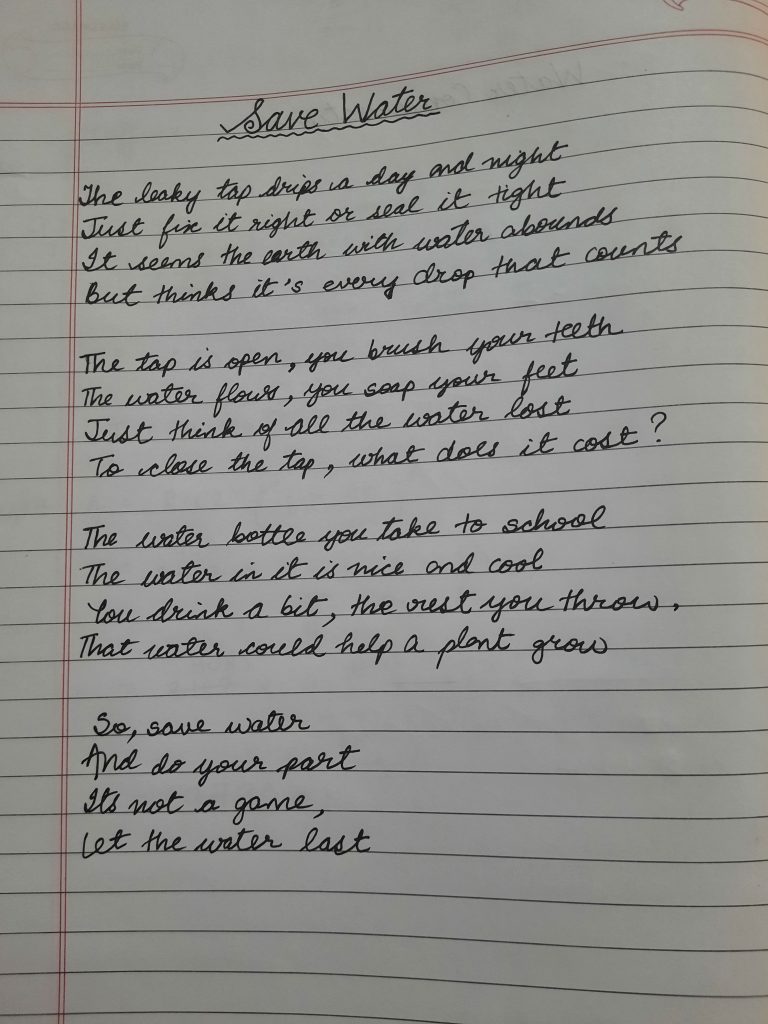 Save Water
The leaky tap drips a day and night
Just fix it right or seal it tight
It seems the earth with water abounds
But thinks it's every drop that counts
The tap is open, you brush your teeth
The water flows, you soap your feet
Just think of all the water lost
To close the tap, what does it cost?
The water bottle you take to school
The water in it is nice and cool
You drink a bit, the rest you throw,
That water could help a plant grow
So, save water
And do your part
Its not a game,
Let the water last